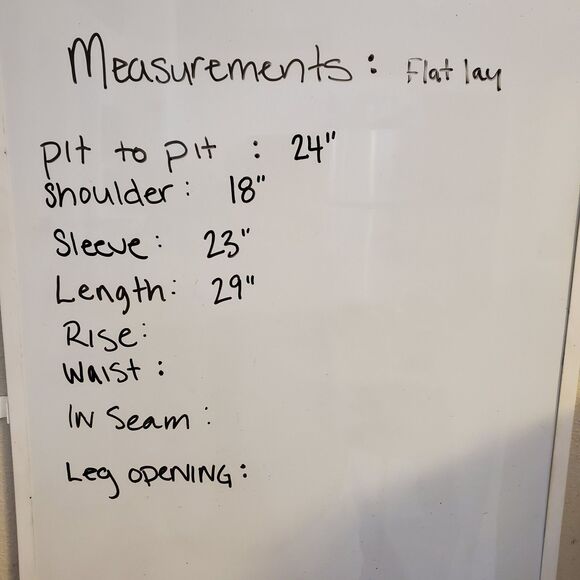 Measurements: Flat lay
pit to pit : 24"
Shoulder: 18"
Sleeve: 23"
Length: 29"
Rise:
Waist:
IN Seam:
Leg OPENING: